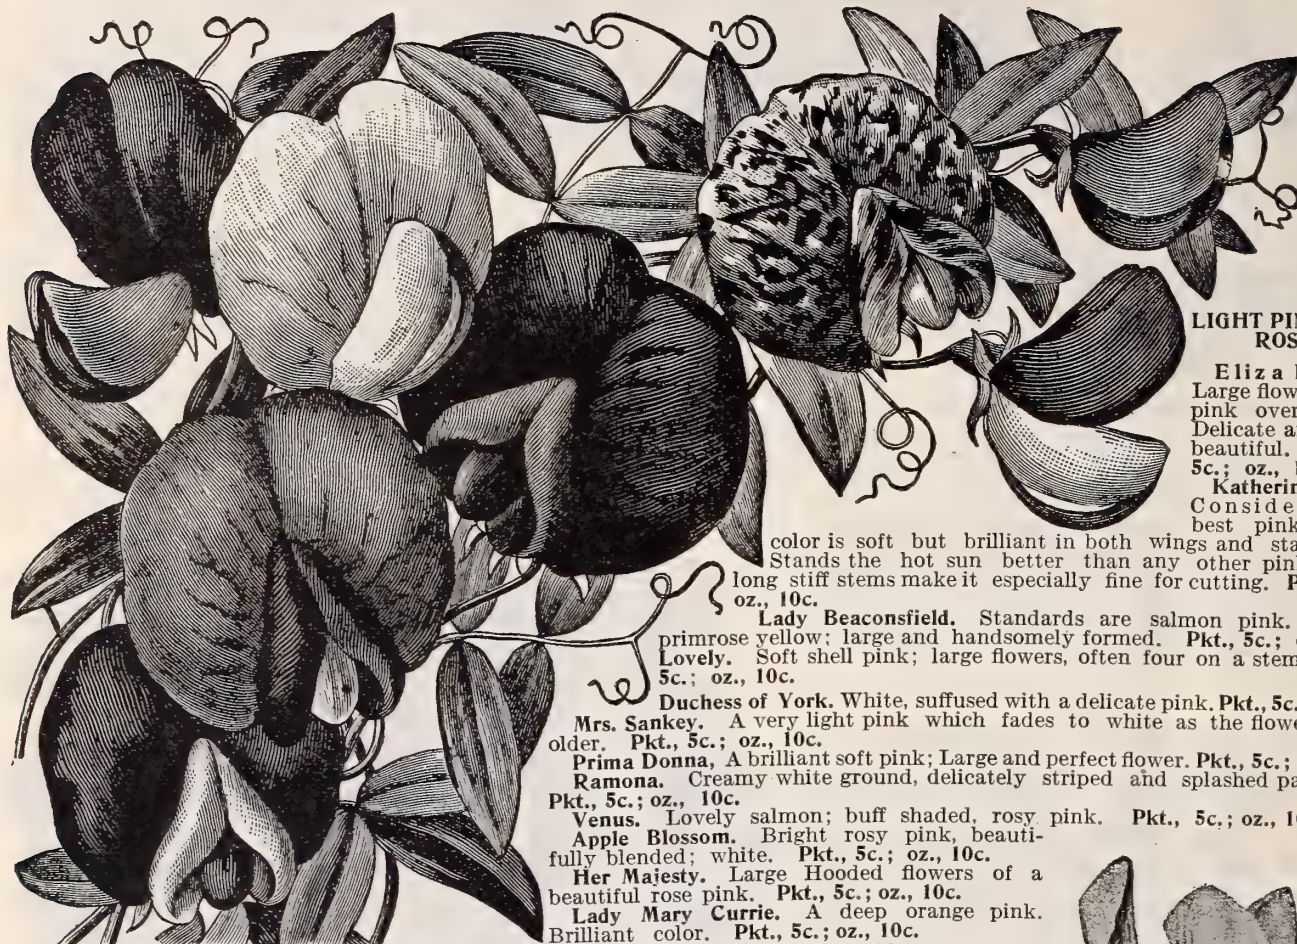 LIGHT
Eliza
Large
pink over
Delicate
beautiful.
5c.; oz.,
best pink
color is soft but brilliant in both wings and
Stands the hot sun better than any other
long stiff stems make it especially fine for cutting.
oz., 10c.
Lady Beaconsfield. Standards are salmon pink.
primrose yellow; large and handsomely formed. Pkt., 5c.;
Lovely. Soft shell pink; large flowers, often four on a stem
5c.; oz., 10c.
Duchess of York. White, suffused with a delicate pink. Pkt., 5c.
Mrs. Sankey. A very light pink which fades to white as the
older. Pkt., 5c.; oz., 10c.
Prima Donna, A brilliant soft pink; Large and perfect flower. Pkt., 5c.;
Ramona. Creamy white ground, delicately striped and splashed
Pkt., 5c.; oz., 10c.
Venus. Lovely salmon; buff shaded, rosy pink. Pkt., 5c.; oz.,
Apple Blossom. Bright rosy pink, beauti-
fully blended; white. Pkt., 5c.; oz., 10c.
Her Majesty. Large Hooded flowers of a
beautiful rose pink. Pkt., 5c.; oz., 10c.
Lady Mary Currie. A deep orange pink.
Brilliant color. Pkt., 5c.; oz., 10c.